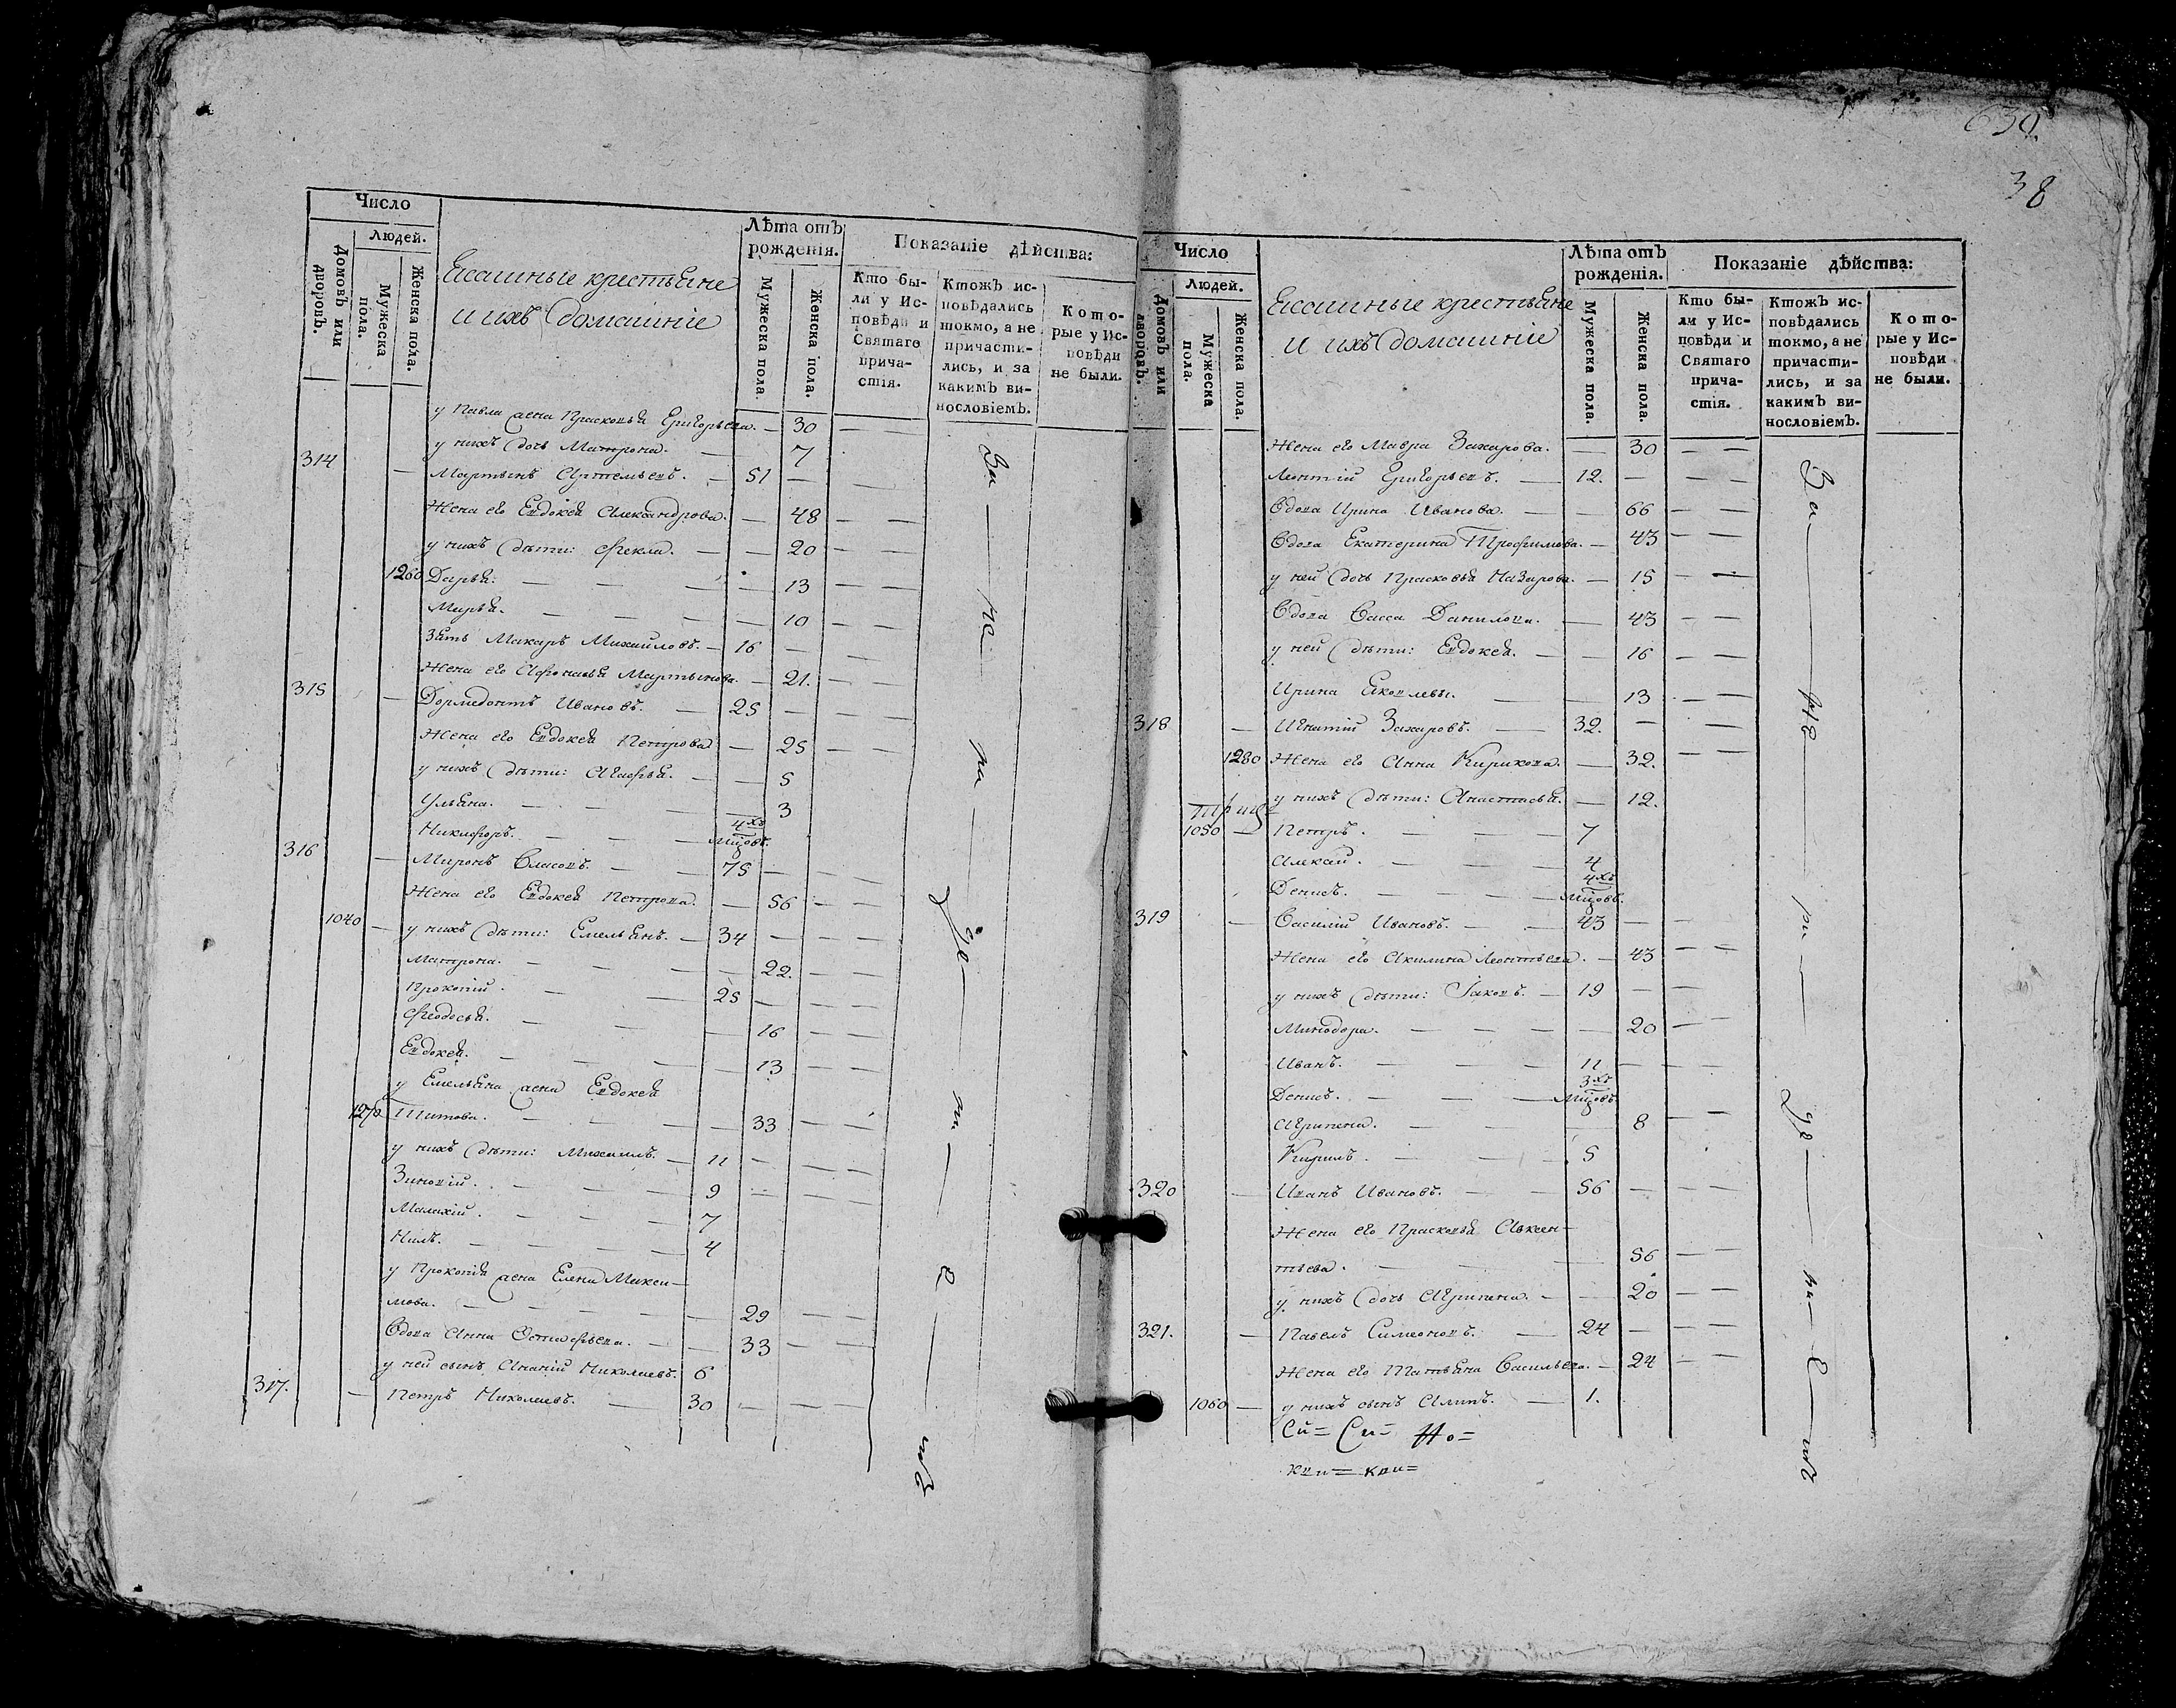 630.
38
Число
Людей.
Домовъ или дворовъ.
Мужеска пола.
Женска пола.
Ясашные крестьяне
и ихъ домашніе
Лѣта отъ рожденія.
Мужеска пола.
Женска пола.
Показаніе дѣйства:
Кто были у Исповѣди и Святаго причастія.
Ктожъ исповѣдались токмо, а не причастились, и за какимъ винословіемъ.
Которые у Исповѣди не были.
у Павла жена Прасковья Григорьева. — 30
у нихъ дочь Матрона. — 7
314 — Мартынъ Артемьевъ. — 51 —
Жена его Евдокея Александрова. — 48
у нихъ дѣти: Фекла. — — 20
1260 Дарья. — — 13
Марья. — — 10
Зять Макаръ Михайловъ. — 16 —
Жена его Афонасья Мартынова. — 21.
315 — Дормедонтъ Ивановъ. — 25 —
Жена его Евдокея Петрова — 25
у нихъ дѣти: Агафья. — — 5
Ульяна. — — 3
Никифоръ. — — 4хъ мцовъ.
316 — Миронъ Власовъ. — 75 —
Жена его Евдокея Петрова. — 56
1040 — у нихъ дѣти: Емельянъ. — 34 —
Матрона. — — 22.
Прокопій. — — 25 —
Феодосья. — — 16
Евдокея. — — 13
у Емельяна жена Евдокея
1270 Титова. — — 33
у нихъ дѣти: Михаилъ. — 11 —
Зиновій. — — 9
Малахій. — — 7
Нилъ. — — 4
у Прокопія жена Елена Макси-
мова. — — 29
Вдова Анна Остафьева. — — 33
у ней сынъ Ананій Николаевъ. 6
317. — Петръ Николаевъ. — 30 —
За — не — на — де — ни — е — мъ
Число
Людей.
Домовъ или дворовъ.
Мужеска пола.
Женска пола.
Ясашные крестьяне
и ихъ домашніе
Лѣта отъ рожденія.
Мужеска пола.
Женска пола.
Показаніе дѣйства:
Кто были у Исповѣди и Святаго причастія.
Ктожъ исповѣдались токмо, а не причастились, и за какимъ винословіемъ.
Которые у Исповѣди не были.
Жена его Мавра Захарова. — 30
Леонтій Григорьевъ. — 12. —
Вдова Ирина Иванова. — — 66
Вдова Екатерина Трофимова. — 43
у ней дочь Прасковья Назарова. — 15
Вдова Васса Данилова. — 43
у ней дѣти: Евдокея. — — 16
Ирина Яковлевы. — — 13
318 — Игнатій Захаровъ. — 32. —
1280 Жена его Анна Кирикова. — 32.
у нихъ дѣти: Анастасья. — 12.
1050 — Петръ. — — 7
Алексий. — — 4
Денисъ. — — 4хъ мцовъ.
319 — Василій Ивановъ. — — 43 —
Жена его Акилина Леонтьева. — 43
у нихъ дѣти: Іаковъ. — 19 —
Минодора. — — 20
Иванъ. — — 11 —
Денисъ. — — 3хъ мцовъ
Агрипена. — — 8
Кирилъ. — — 5
320 — Иванъ Ивановъ. — — 56 —
Жена его Прасковья Авксен-
тьева. — — 56
у нихъ дочь Агрипена. — — 20
321. — Павелъ Симеоновъ. — 24 —
Жена его Татьяна Васильева. — 24
1060 — у нихъ сынъ Алипъ. — 1.
За — не — на — де — ни — е — мъ